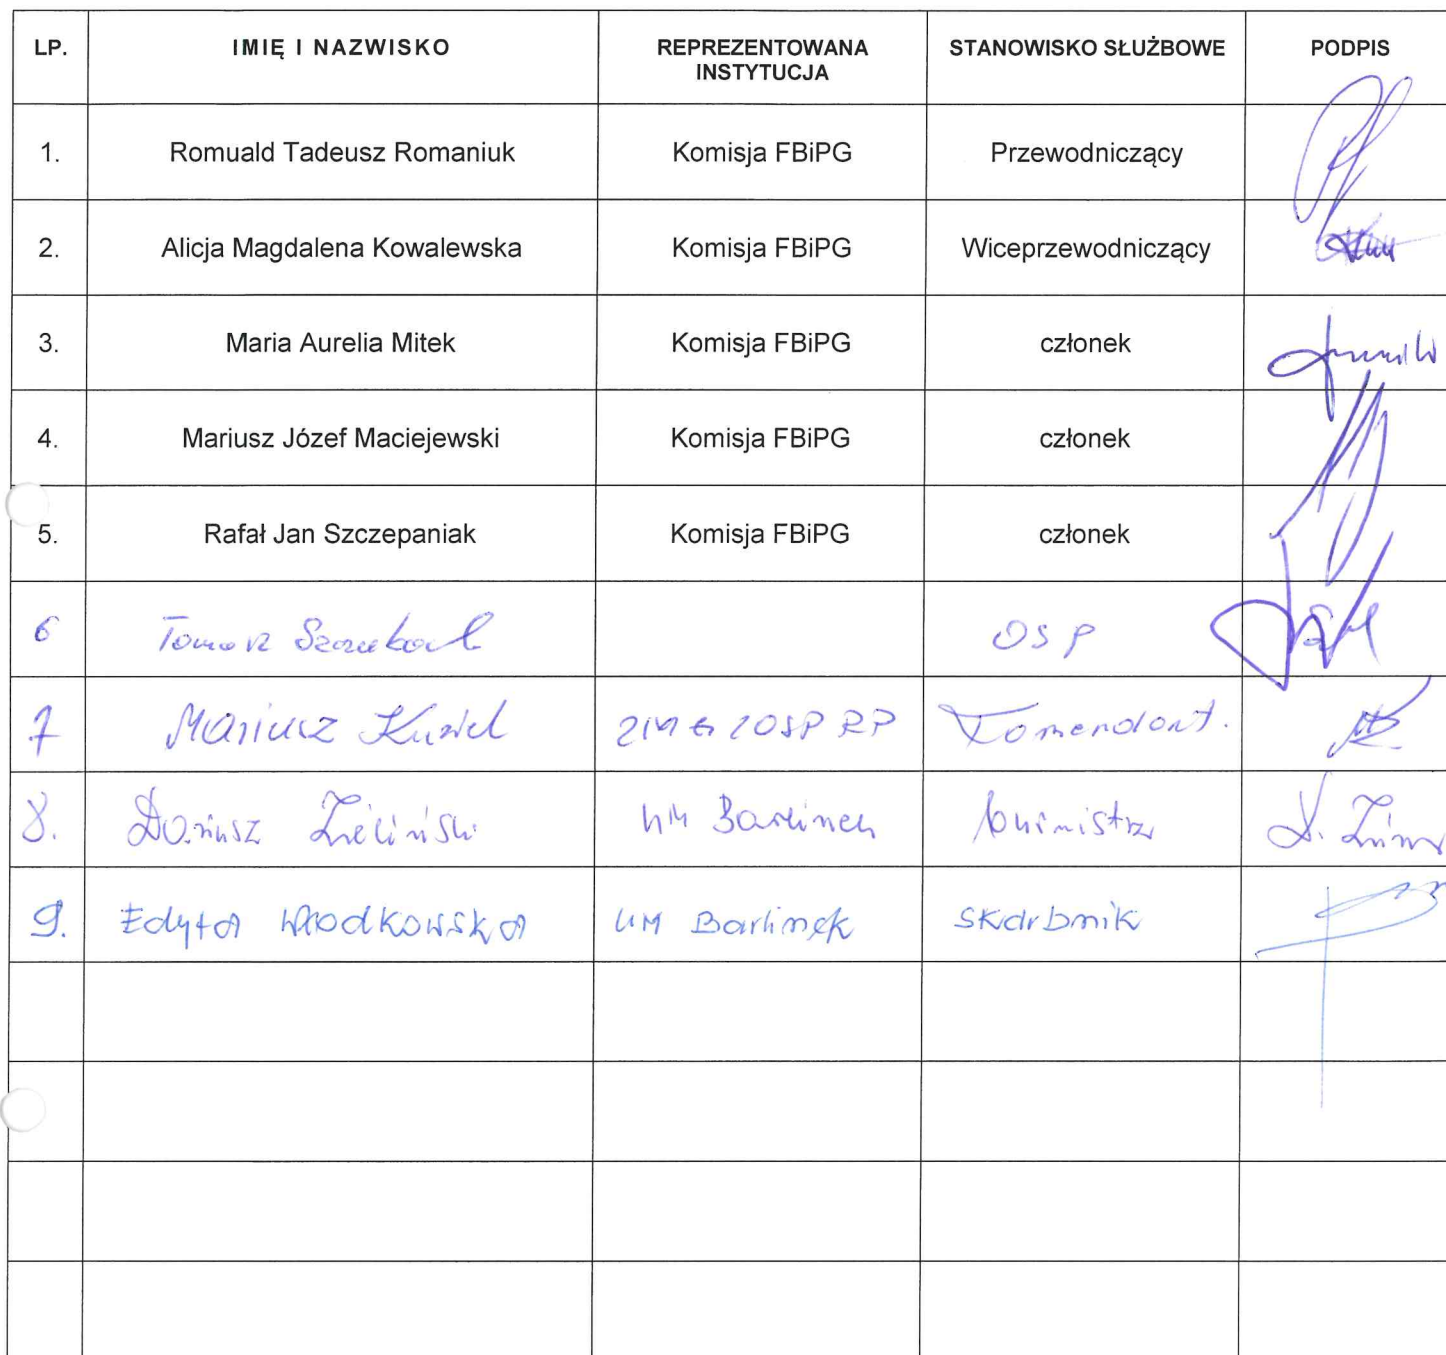 LP. IMIĘ I NAZWISKO REPREZENTOWANA INSTYTUCJA STANOWISKO SŁUŻBOWE PODPIS
1. Romuald Tadeusz Romaniuk Komisja FBiPG Przewodniczący
2. Alicja Magdalena Kowalewska Komisja FBiPG Wiceprzewodniczący
3. Maria Aurelia Mitek Komisja FBiPG członek
4. Mariusz Józef Maciejewski Komisja FBiPG członek
5. Rafał Jan Szczepaniak Komisja FBiPG członek
6 Tomasz OSP
7 Mariusz ZOSP RP Komendant.
8. Dariusz Zieliński UM Barlinek burmistrz
9. Edyta Włodkowska UM Barlinek Skarbnik